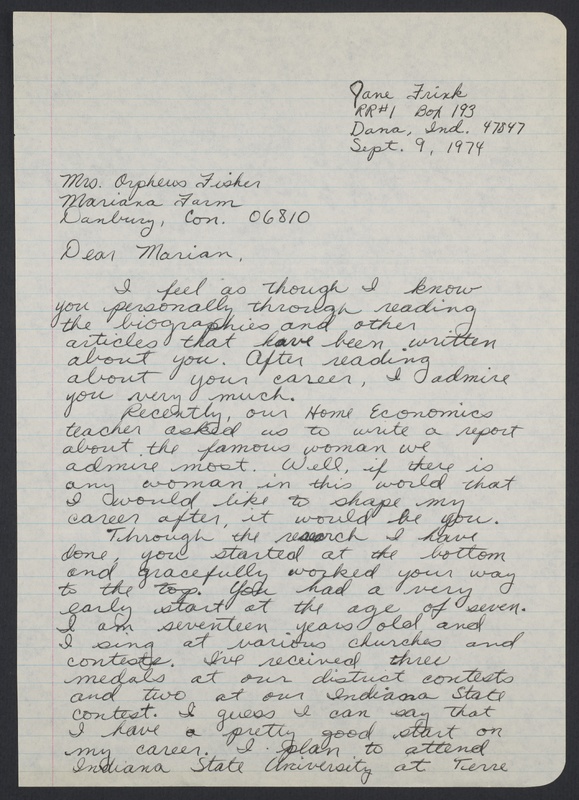 Jane Frink
RR#1 Box 193
Dana, Ind. 47847
Sept. 9, 1974
Mrs. Orpheus Fisher
Mariana Farm
Danbury, Con. 06810
Dear Marian,
I feel as though I know
you personally through reading
the biographies and other
articles that have been written
about you. After reading
about your career, I admire
you very much.
Recently, our Home Economics
teacher asked us to write a report
about the famous woman we
admire most. Well, if there is
any woman in this world that
I would like to shape my
career after, it would be you.
Through the research I have
done, you started at the bottom
and gracefully worked your way
to the top. You had a very
early start at the age of seven.
I am seventeen years old and
I sing at various churches and
contests. I've received three
medals at our district contests
and two at our Indiana State
contest. I guess I can say that
I have a pretty good start on
my career. I plan to attend
Indiana State University at Terre